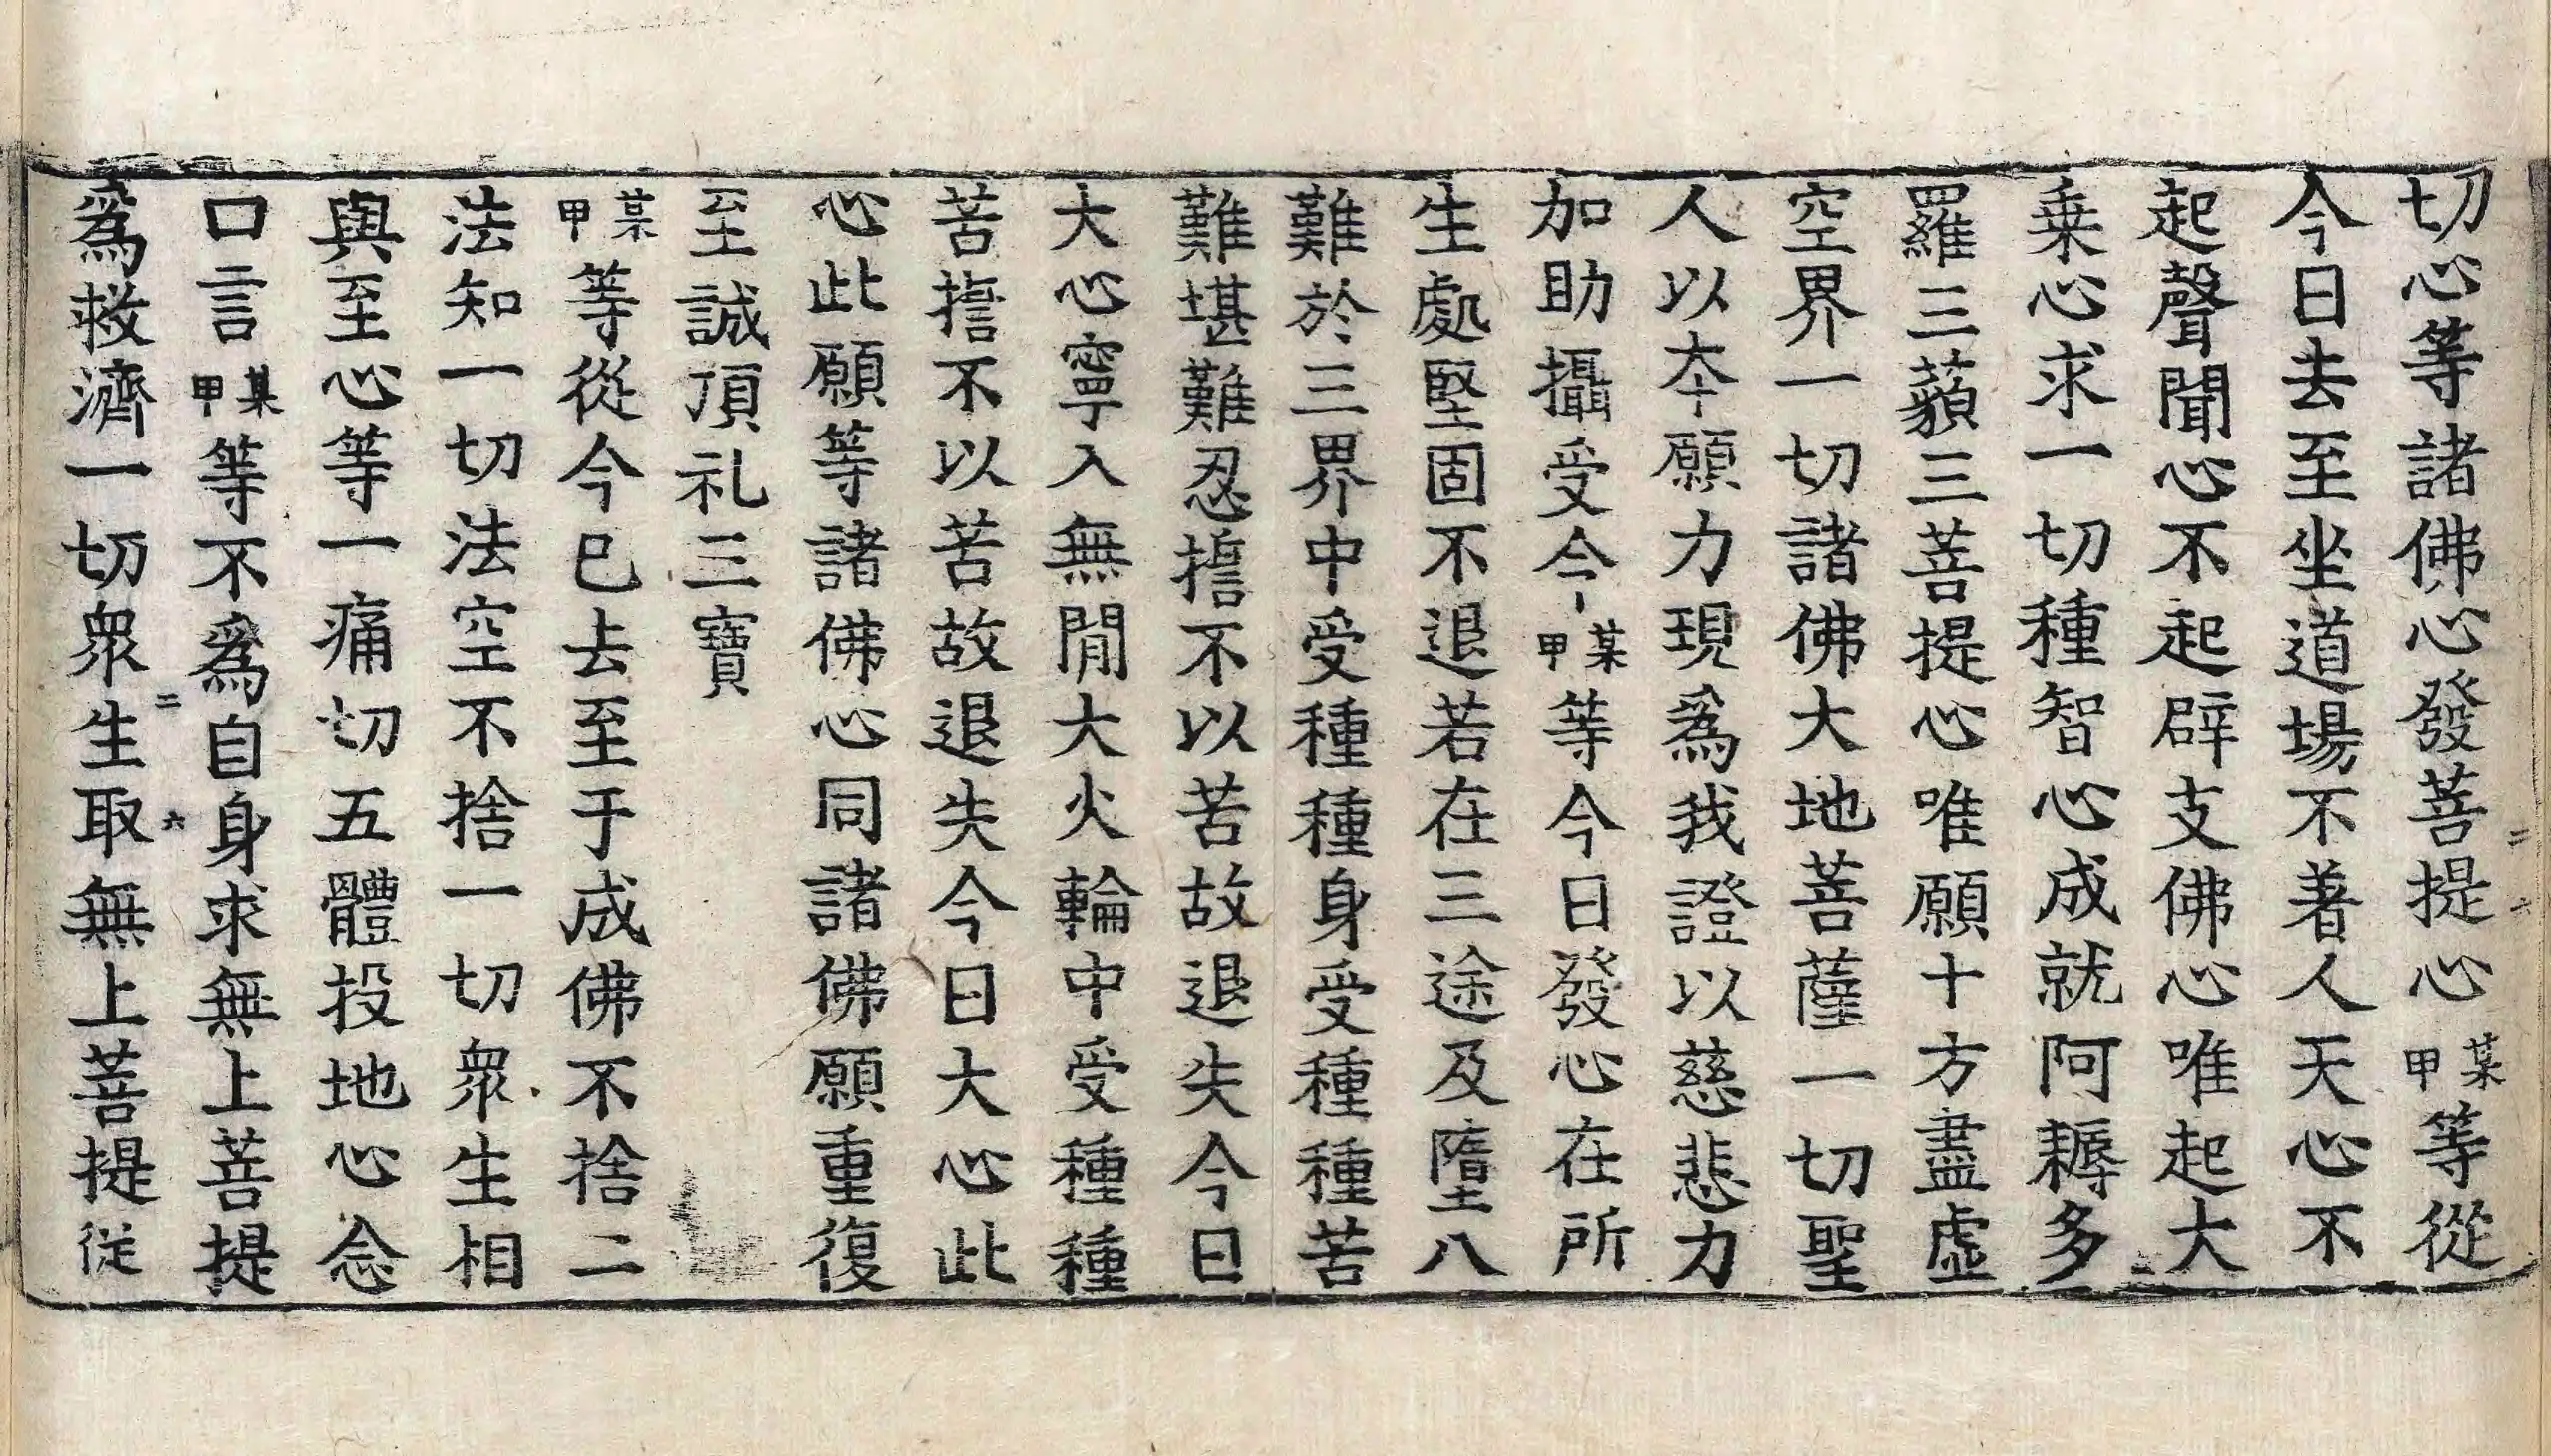 切心等諸佛心發菩提心某甲等從
今日去至坐道場不著人天心不
起聲聞心不起辟支佛心唯起大
乗心求一切種智心成就阿耨多
羅三藐三菩提心唯願十方盡虛
空界一切諸佛大地菩薩一切聖
人以夲願力現爲我證以慈悲力
加助攝受令某甲等今日發心在所
生處堅固不退若在三途及墮八
難於三界中受種種身受種種苦
難堪難忍擔不以苦故退失今日
大心寧入無閒大火輪中受種種
苦擔不以苦故退失今日大心此
心此願等諸佛心同諸佛願重復
至誠頂礼三寶
某甲等從今已去至于成佛不捨二
法知一切法空不捨一切衆生相
與至心等一痛切五體投地心念
口言某甲等不爲自身求無上菩提
爲救濟一切衆生取無上菩提従
二 六
二 六